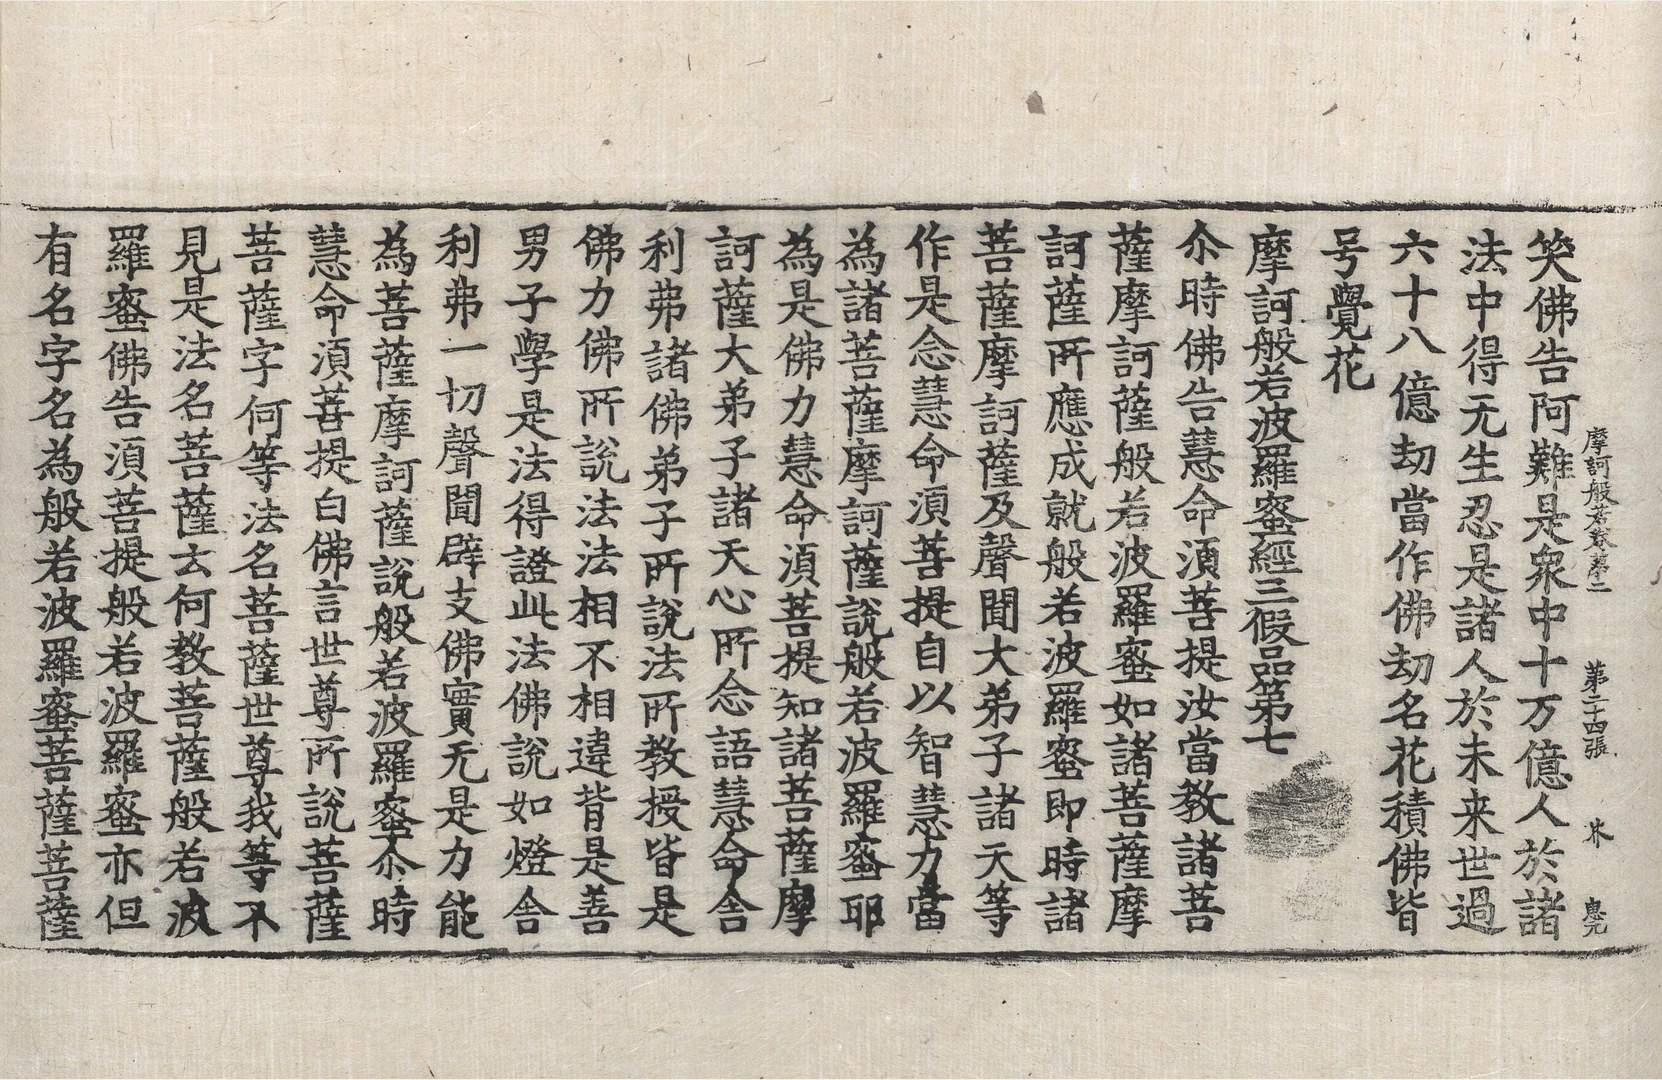 摩訶般若卷第二　第二十四張　米　惠元
笑佛告阿難是衆中十万億人於諸
法中得无生忍是諸人於未来世過
六十八億劫當作佛劫名花積佛皆
号覺花
摩訶般若波羅蜜經三假品第七
尒時佛告慧命湏菩提汝當教諸菩
薩摩訶薩般若波羅蜜如諸菩薩摩
訶薩所應成就般若波羅蜜即時諸
菩薩摩訶薩及聲聞大弟子諸天等
作是念慧命湏菩提自以智慧力當
為諸菩薩摩訶薩說般若波羅蜜耶
為是佛力慧命湏菩提知諸菩薩摩
訶薩大弟子諸天心所念語慧命舍
利弗諸佛弟子所說法所教授皆是
佛力佛所說法法相不相違背是善
男子學是法得證此法佛說如燈舍
利弗一切聲聞辟支佛實无是力能
為菩薩摩訶薩說般若波羅蜜尒時
慧命湏菩提白佛言世尊所說菩薩
菩薩字何等法名菩薩世尊我等不
見是法名菩薩云何教菩薩般若波
羅蜜佛告湏菩提般若波羅蜜亦但
有名字名為般若波羅蜜菩薩菩薩